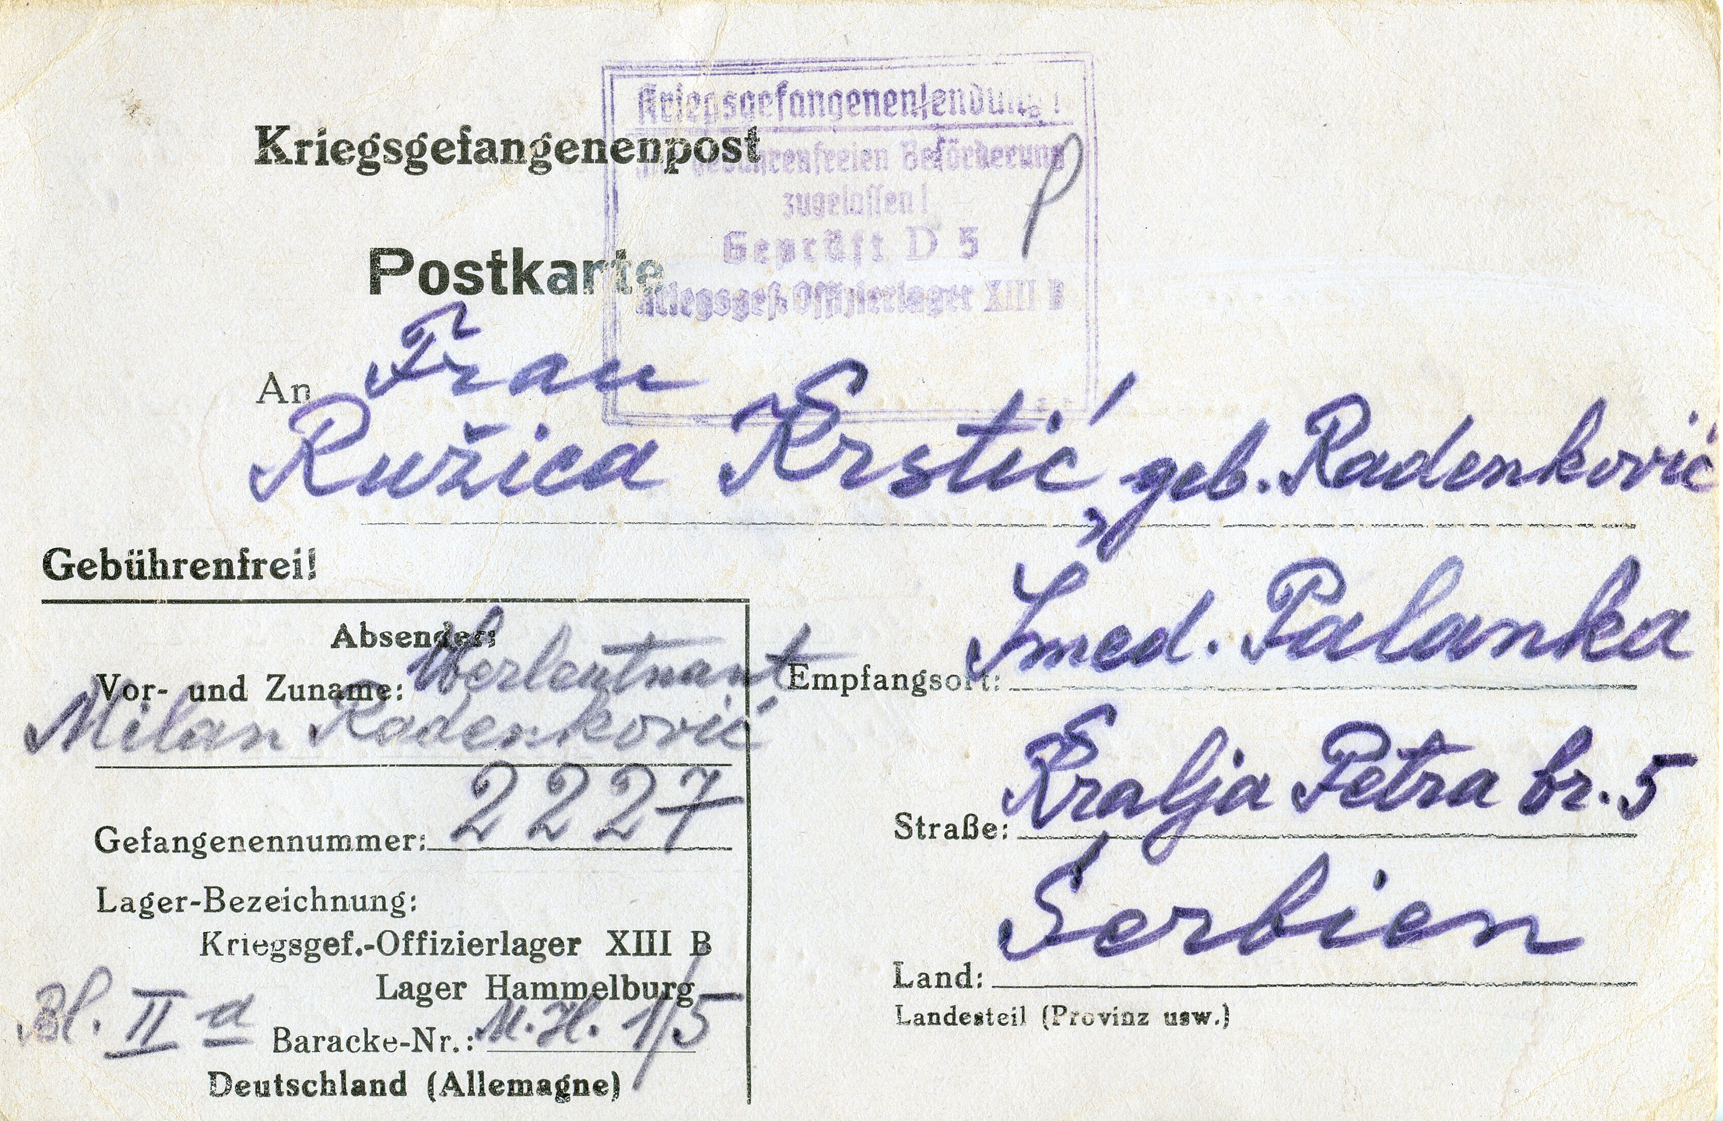 Kriegsgefangenensendung!
Kriegsgefangenenpost
gebührenfreien Beförderung
zugelassen!
Geprüft D 5
Postkarte
Kriegsgef. Offizierlager XIII B
An Frau
Ružica Krstić, geb. Radenković
Gebührenfrei!
Absender:
Vor- und Zuname: Oberleutnant
Milan Radenković
Gefangenennummer: 2227
Lager-Bezeichnung:
Kriegsgef.-Offizierlager XIII B
Lager Hammelburg
Bl. II a
Baracke-Nr.: 1/5
Deutschland (Allemagne)
Empfangsort: Smed. Palanka
Straße: Kralja Petra br. 5
Land: Serbien
Landesteil (Provinz usw.)